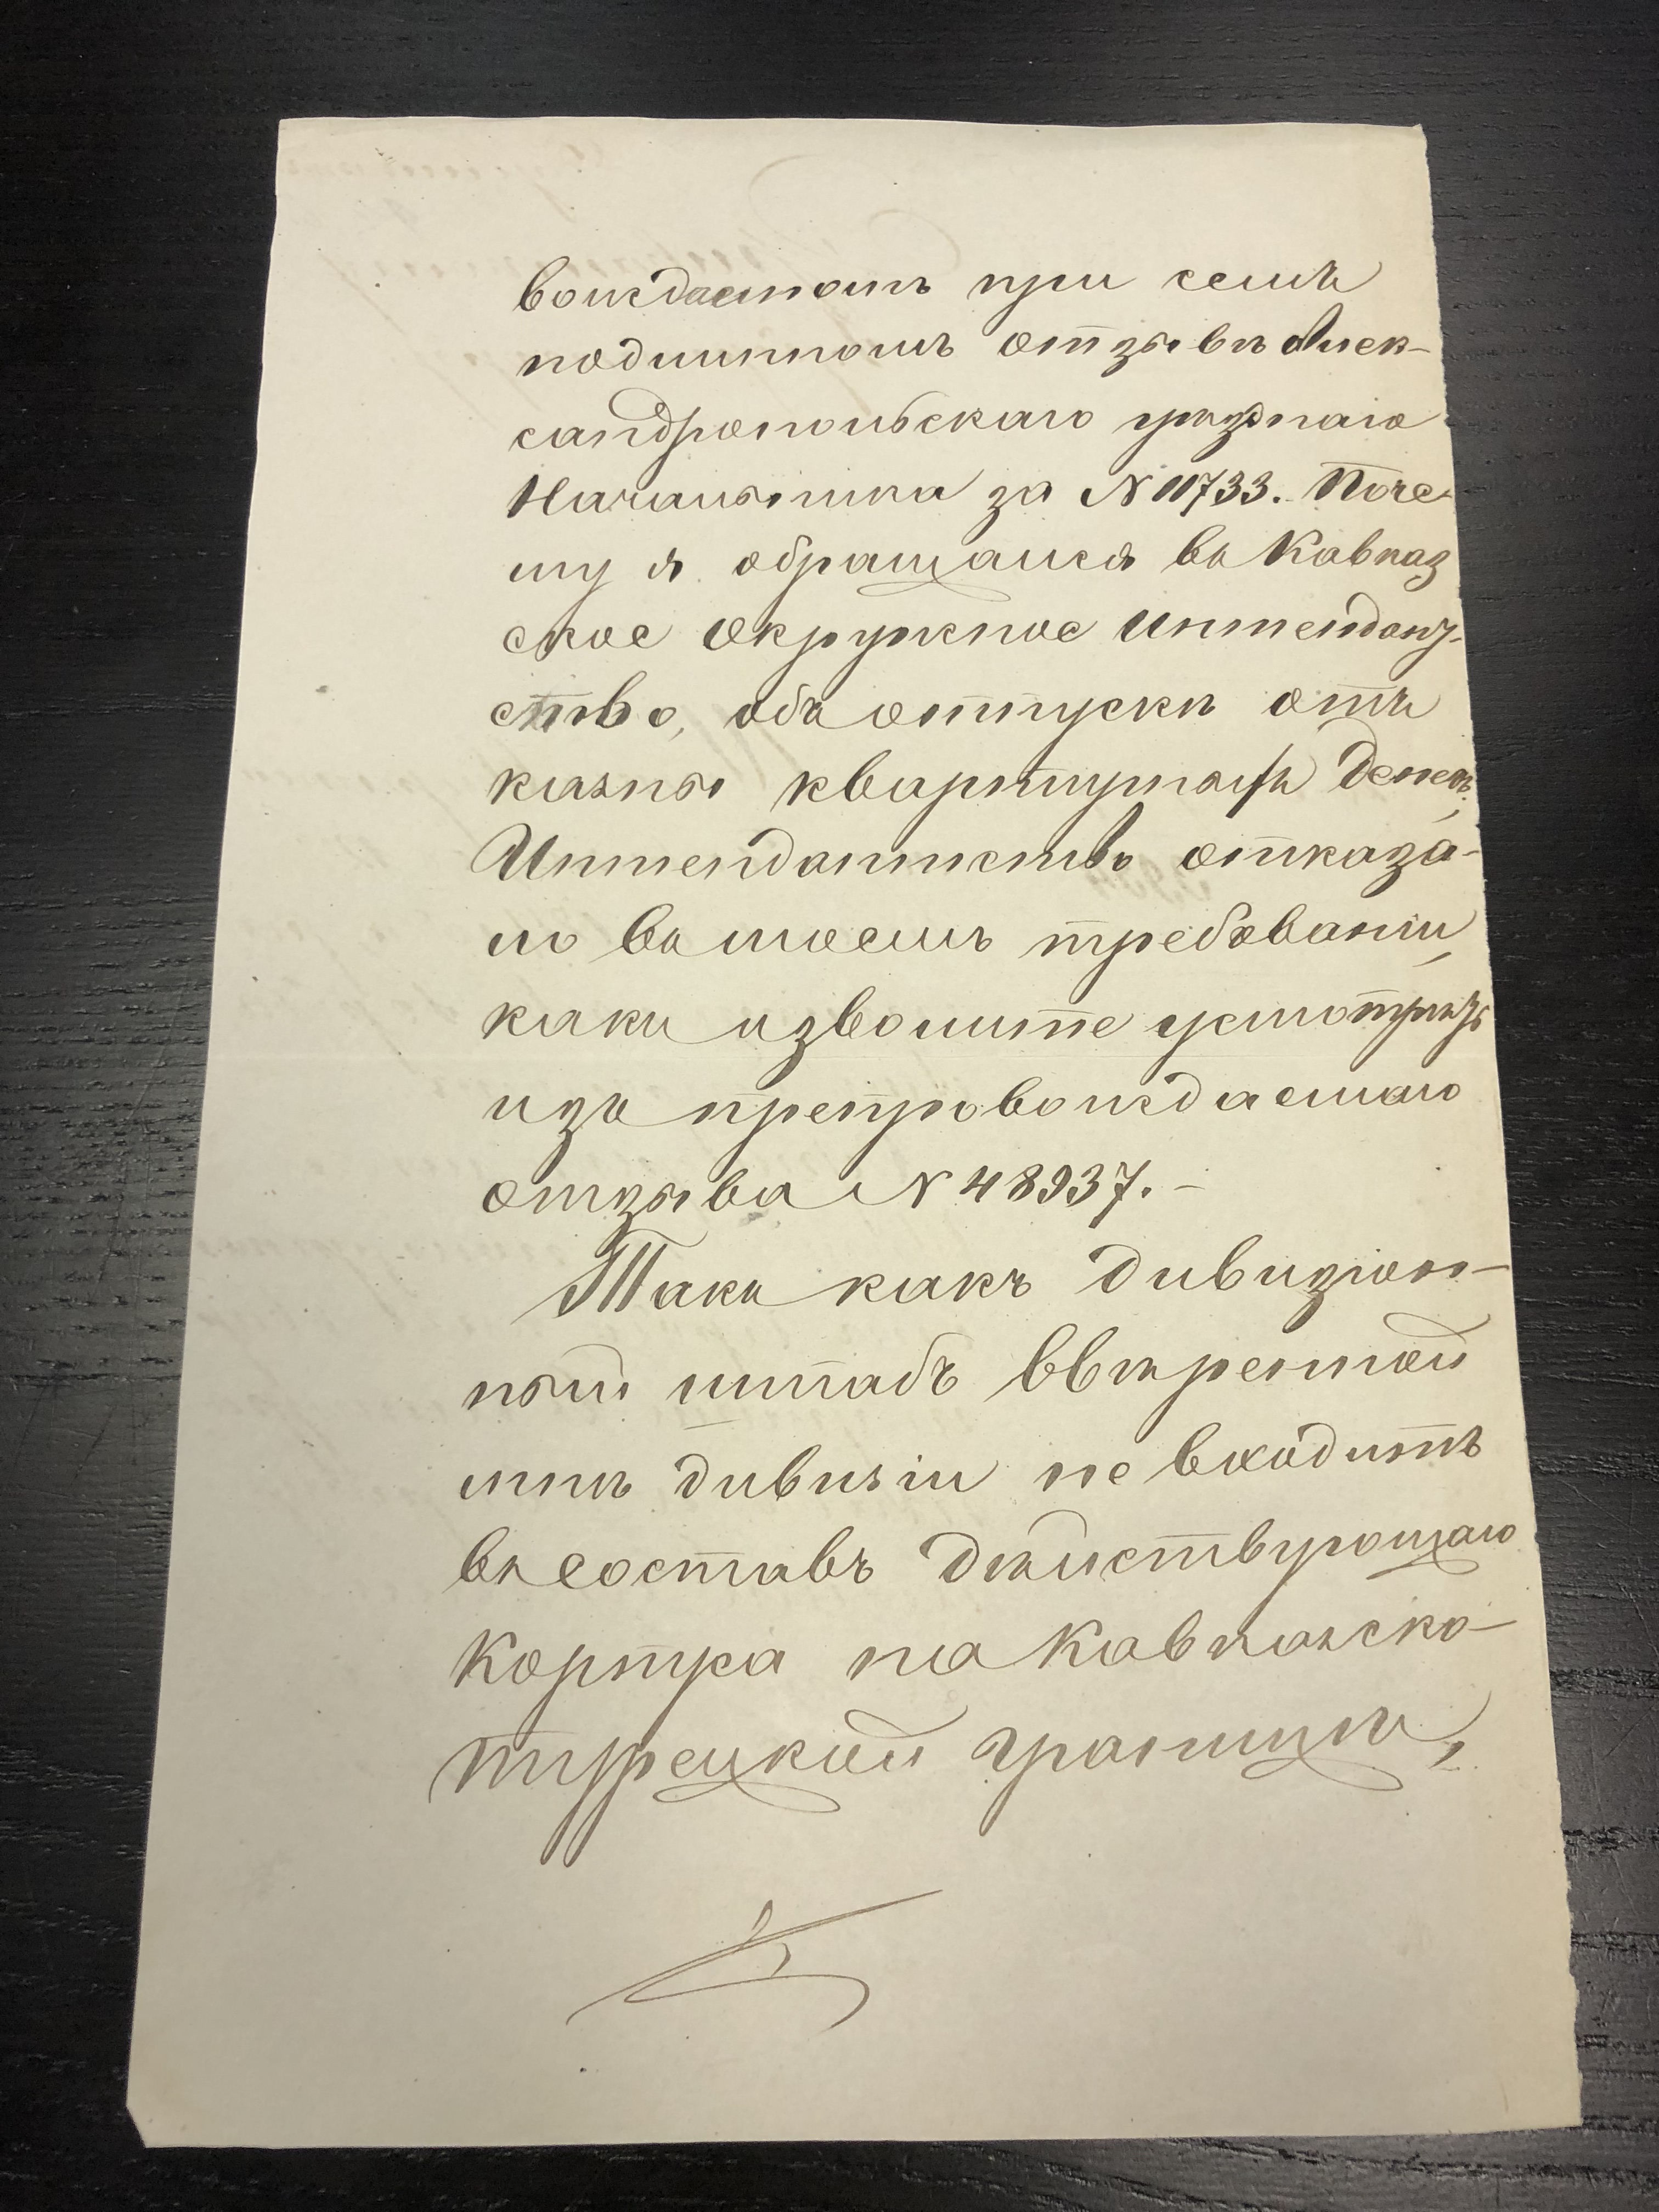 вождаемомъ при семъ
подлинномъ отзывѣ Алек-
сандропольскаго уѣзднаго
Начальника за N 11733. Поче-
му я обращался въ Кавказ
ское Окружное Интендант-
ство, объ отпускѣ отъ
казны квартирныхъ денегъ,
Интендантство отказа-
ло въ моемъ требованіи,
какъ изволите усмотрѣть
изъ препровождаемаго
отзыва N 48937. -
Такъ какъ дивизіон-
ный штабъ ввѣренной
мнѣ дивизіи не входитъ
въ составъ дѣйствующаго
Корпуса на Кавказско-
турецкой границѣ,